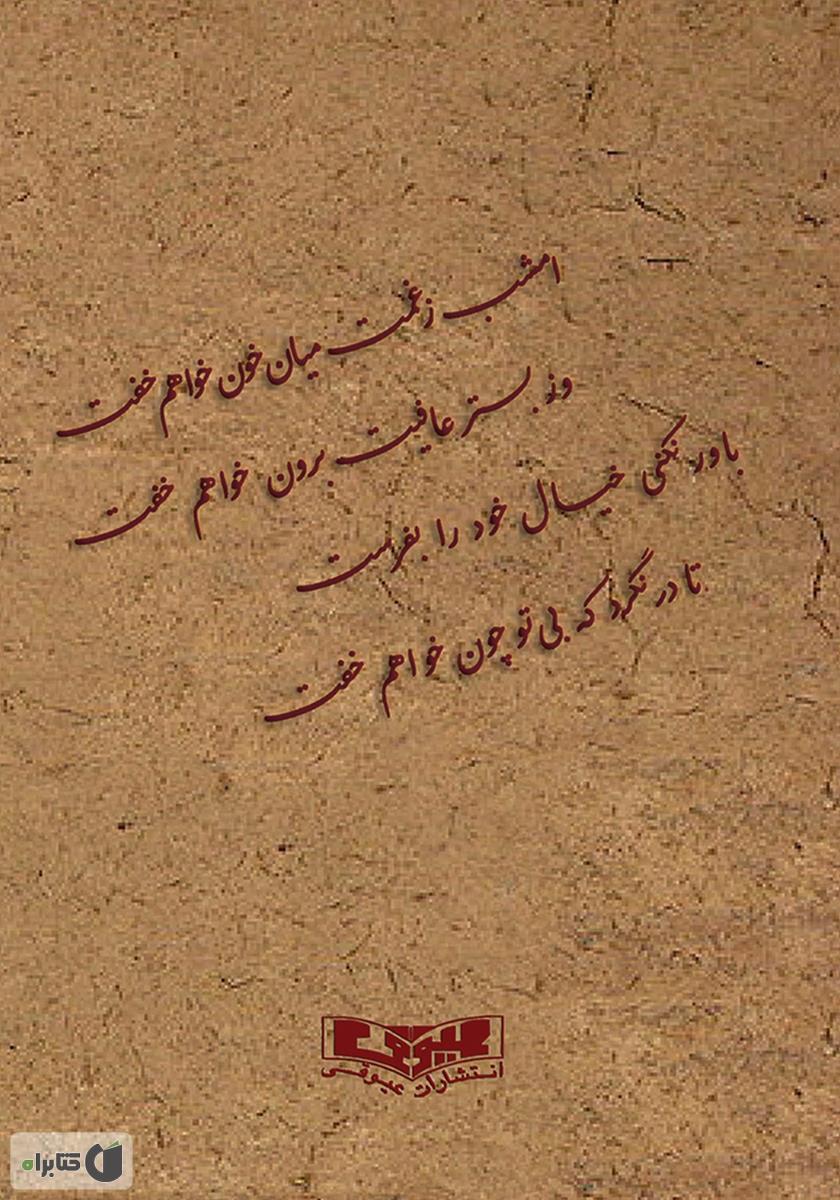 امشب ز غمت میان خون خواهم خفت
وز بستر عافیت برون خواهم خفت
باور نکنی خیال خود را بفرست
تا در نگرد که بی تو چون خواهم خفت
عیوقی
انتشارات عیوقی
کتابراه